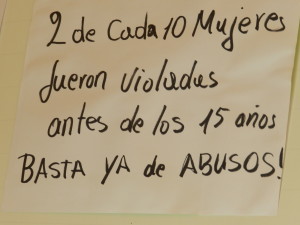 2 de Cada 10 Mujeres
fueron violadas
antes de los 15 años
BASTA YA de ABUSOS!